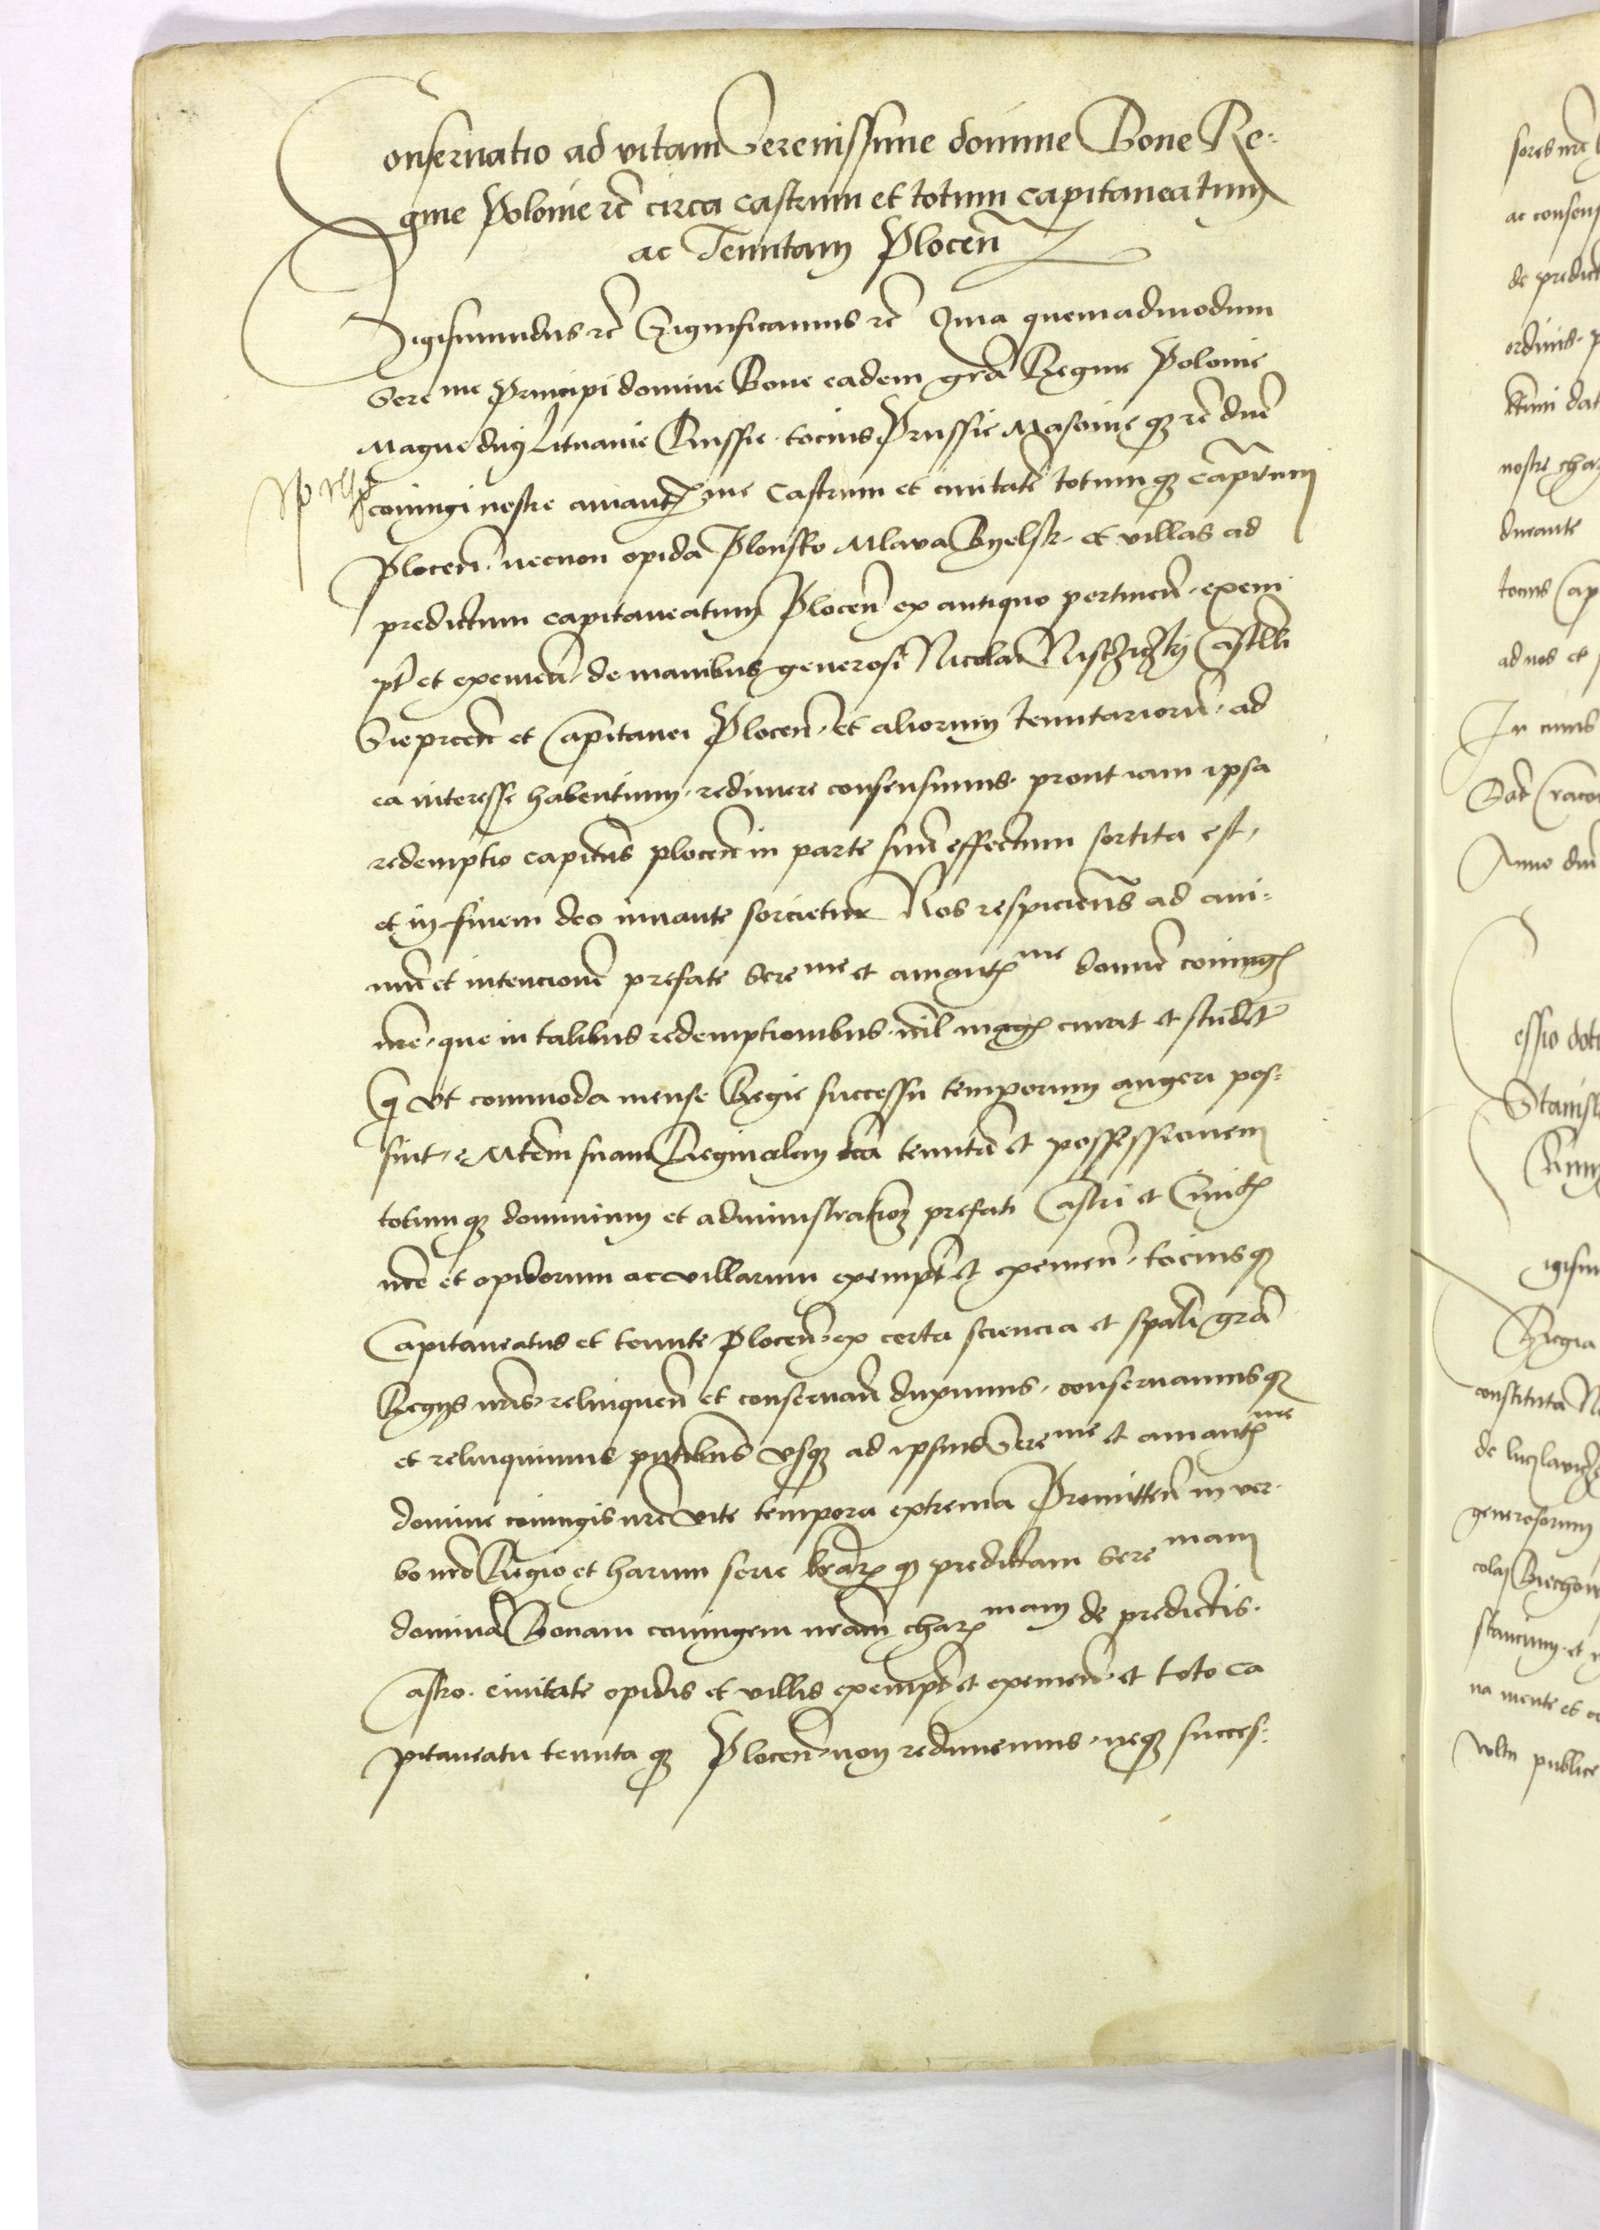 Conservatio ad vitam Serenissime domine Bone Re-
gine Polonie etc circa castrum et totum capitaneatum
ac Tenutam Plocen
Sigismundus etc Significamus etc Quia quemadmodum
Sere me Principi domine Bone eadem gra Regine Polonie
Magne duci Litwanie Russie tocius Prussie Masovie q etc dne
coniugi nostre amant me Castrum et civitate totum q Capitm
Plocen necnon opida Plonsko Mlava Byelsk et villas ad
predictum capitaneatum Plocen ex antiquo pertinen exem
pt et eximen de manibus generosi Nicolai Nisczyczky Castelli
Sieprcen et Capitanei Plocen et aliorum tenutarioru ad
ea interesse habentium redimere consensimus prout iam ipsa
redemptio capitus plocen in parte suu effectum sortita est
et in finem deo iuvante sorcietur Nos respiciens ad ani-
mu et intencione prefate Sere me et amant me domine coniugis
nre que in talibus redemptionibus nil magis curat et studet
q ut commoda mense Regie successu temporum augeri pos-
sint Mtem suam Reginalem tenuta et possessionem
totum q dominium et administrationem prefati Castri et Civit
nec et opidorum ac villarum exempt et eximen tocius q
Capitaneatus et tenute Plocen ex certa sciencia et spali gra
Regijs nris relinquen et conservan duximus conservamus q
et relinquimus pntibus usq ad ipsius Sere me et amant me
domine coniugis nre vite tempora extrema Promitten in ver-
bo nro Regio et harum serie q predictam Sere mam
domina Bonam coniugem nram char mam de predictis
Castro civitate opidis et villis exempt et eximen et toto ca
pitaneatu tenuta q Plocen non redimemus neq succes-
sores nre
ac consens
de predict
ordinis
dat
nostre char
durante
tocius Cap
ad nos et
In cuius
Dat Craco
Anno dni
essio dot
Stanisl
igism
Regia
constituta
de
generosorum
et
na mente et
publice